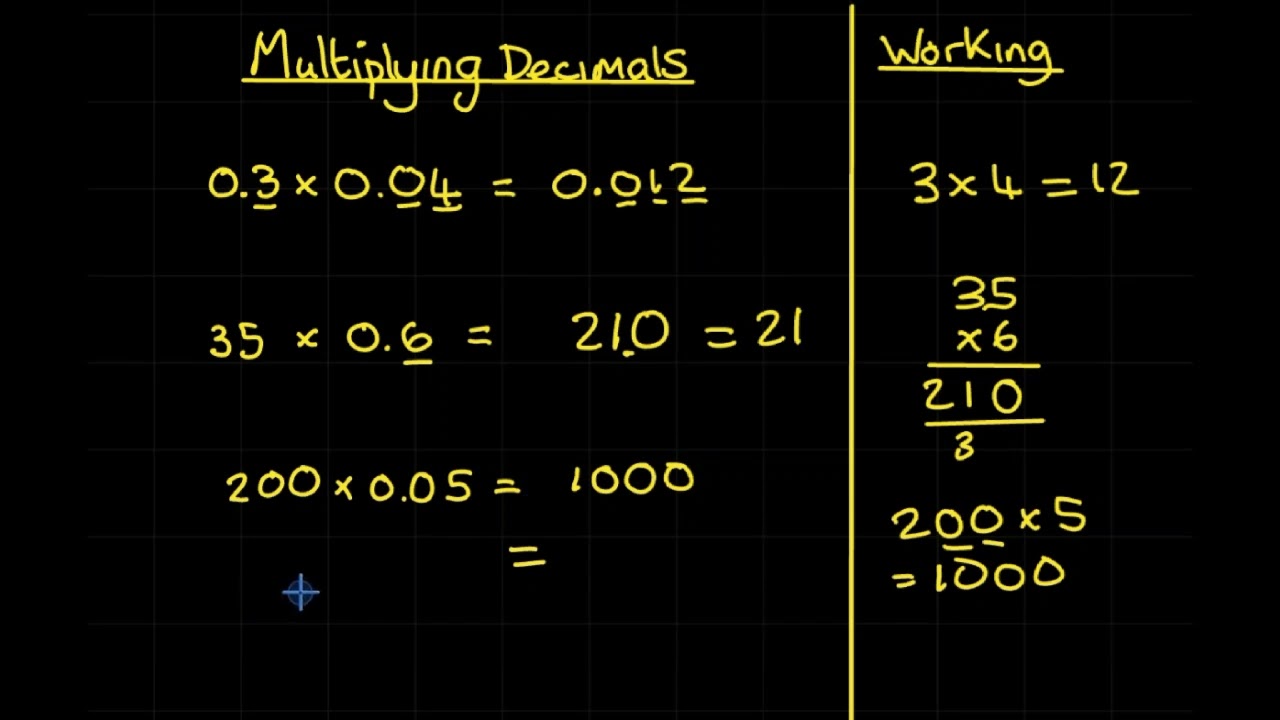 Multiplying Decimals
0.3 × 0.04 = 0.012
35 × 0.6 = 21.0 = 21
200 × 0.05 = 1000
=
Working
3 × 4 = 12
35
× 6
210
3
200 × 5
= 1000